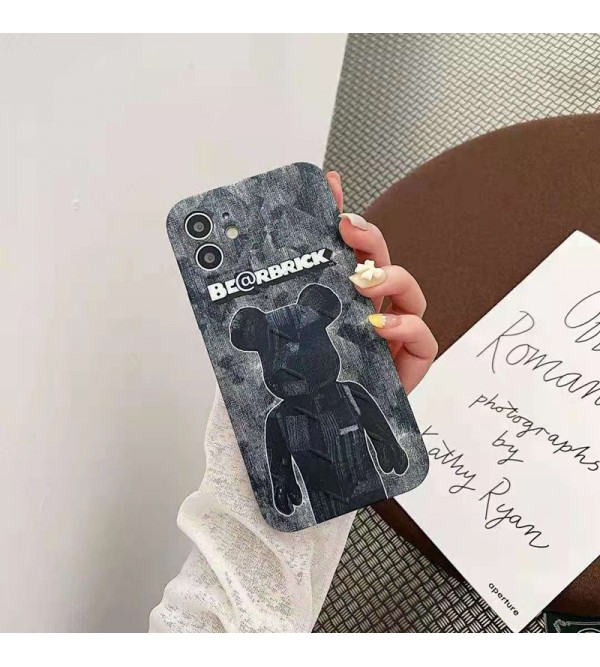 BE@RBRICK
Romance
photographs
by
Kathy Ryan
aperture